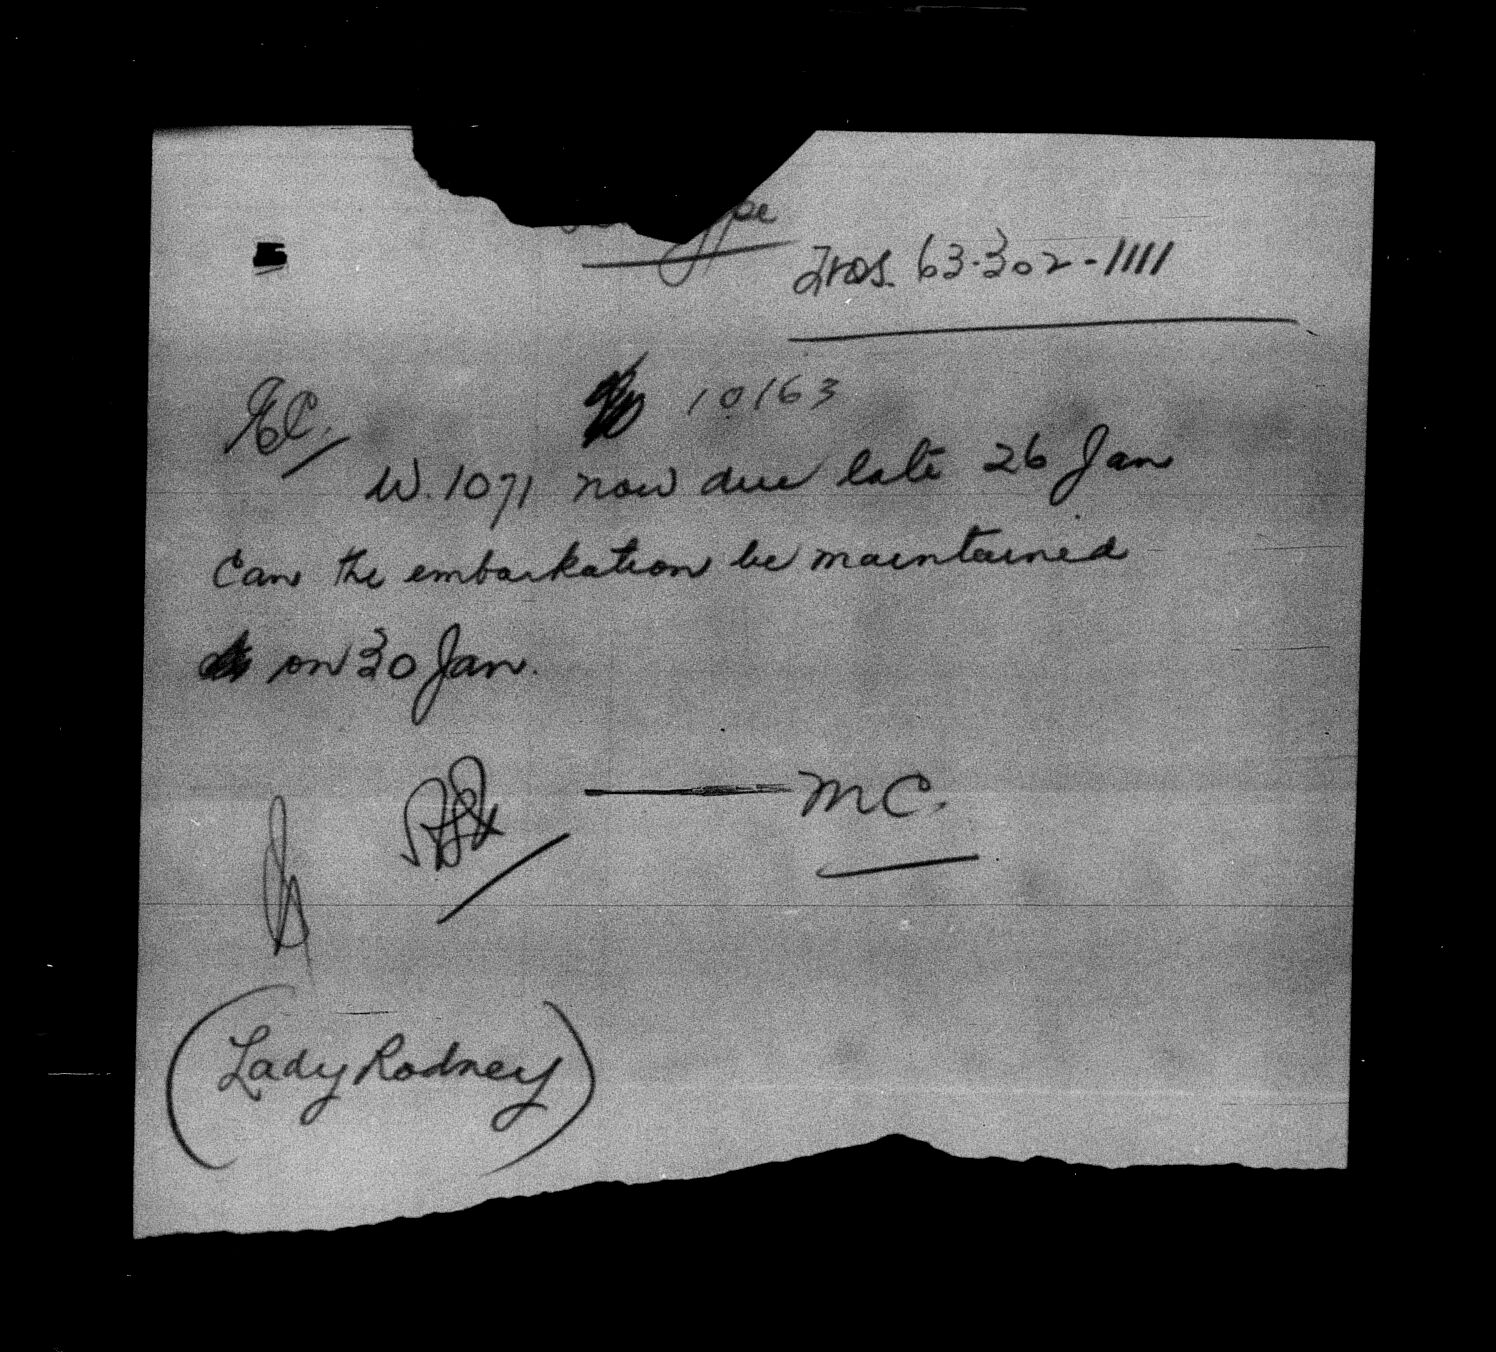 63-302-1111
10163
W. 1071 now due late 26 Jan
Can the embarkation be maintained
on 30 Jan.
MC.
(Lady Rodney)